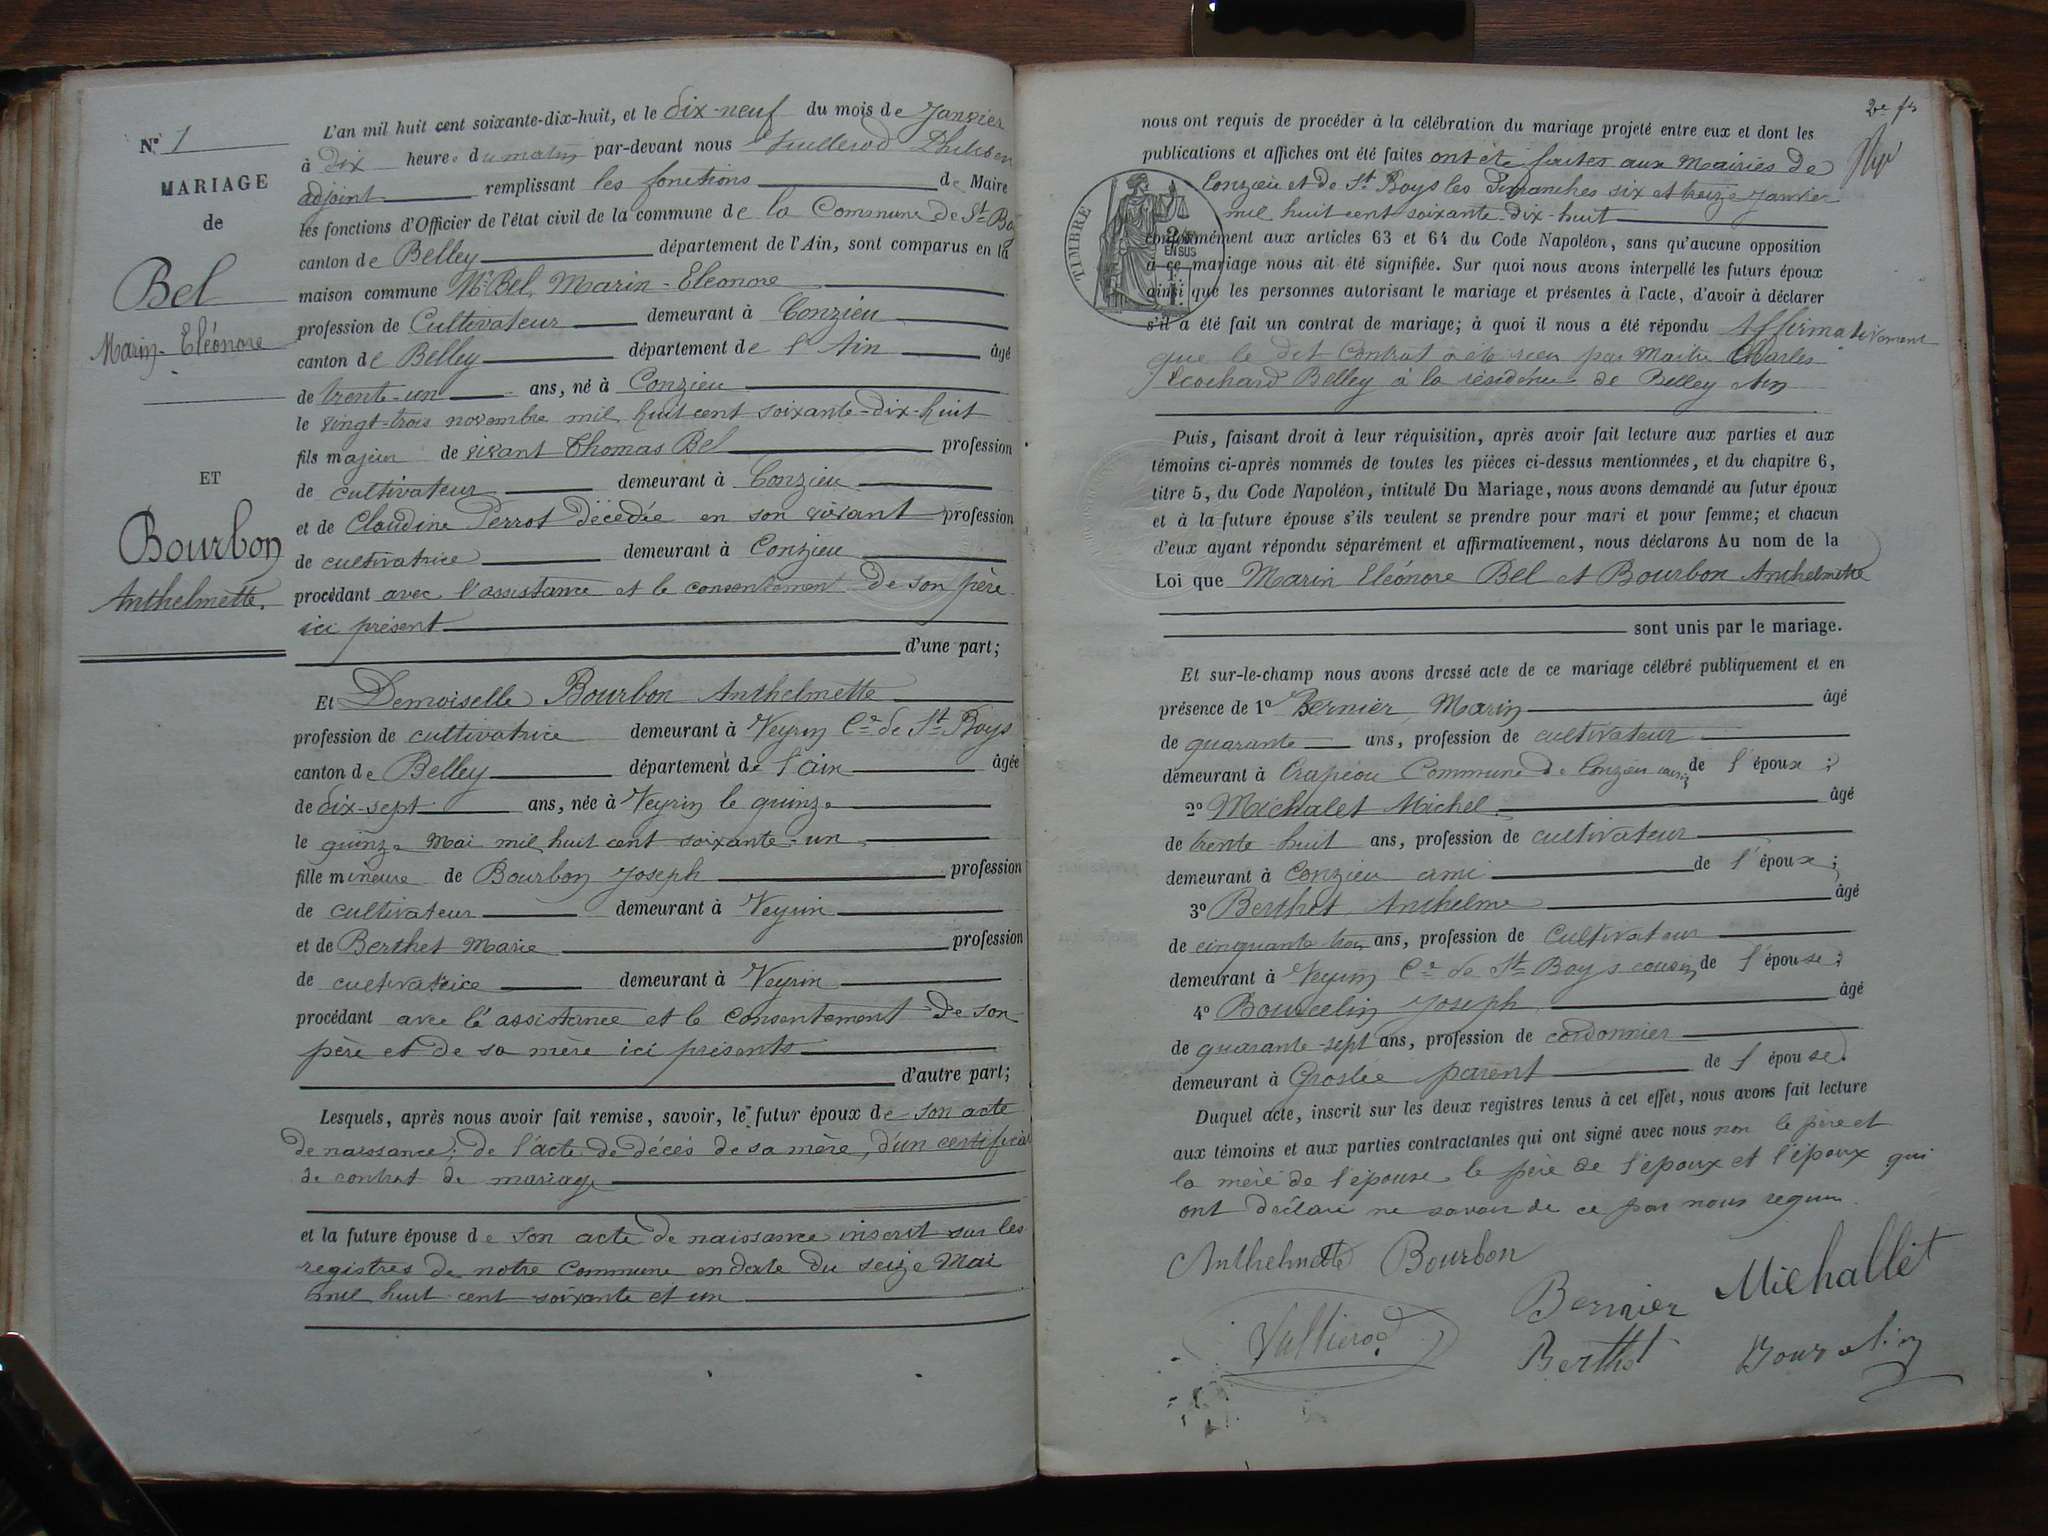 N° 1
MARIAGE
de
Bel
Marin-Eléonore
ET
Bourbon
Anthelmette.
L'an mil huit cent soixante-dix-huit, et le dix-neuf du mois de Janvier
à dix heures du matin par-devant nous
adjoint remplissant les fonctions de Maire
les fonctions d'Officier de l'état civil de la commune de la Commune de St Bo
canton de Belley département de l'Ain, sont comparus en la
maison commune Mr Bel, Marin-Eleonore
profession de Cultivateur demeurant à Conzieu
canton de Belley département de l'Ain âgé
de trente-un ans, né à Conzieu
le vingt-trois novembre mil huit cent soixante-dix-huit
fils majeur de vivant Thomas Bel profession
de cultivateur demeurant à Conzieu
et de Claudine Perrot décédée en son vivant profession
de cultivatrice demeurant à Conzieu
procédant avec l'assistance et le consentement de son père
ici présent
d'une part;
Et Demoiselle Bourbon Anthelmette
profession de cultivatrice demeurant à Veyrin Cne de St Boys
canton de Belley département de l'ain âgée
de dix-sept ans, née à Veyrin le quinze
le quinze Mai mil huit cent soixante-un
fille mineure de Bourbon Joseph profession
de cultivateur demeurant à Veyrin
et de Berthet Marie profession
de cultivatrice demeurant à Veyrin
procédant avec l'assistance et le consentement de son
père et de sa mère ici présents
d'autre part;
Lesquels, après nous avoir fait remise, savoir, le futur époux de son acte
de naissance; de l'acte de décés de sa mère, d'un certificat
de contrat de mariage
et la future épouse de son acte de naissance inscrit sur les
registres de notre commune en date du seize Mai
mil huit cent soixante et un
nous ont requis de procéder à la célébration du mariage projeté entre eux et dont les
publications et affiches ont été faites ont été faites aux Mairies de
Conzieu et de St Boys les Dimanches six et treize Janvier
mil huit cent soixante-dix-huit
TIMBRE
2/10 EN SUS
conformément aux articles 63 et 64 du Code Napoléon, sans qu'aucune opposition
à ce mariage nous ait été signifiée. Sur quoi nous avons interpellé les futurs époux
ainsi que les personnes autorisant le mariage et présentes à l'acte, d'avoir à déclarer
s'il a été fait un contrat de mariage; à quoi il nous a été répondu Affirmativement
que le dit Contrat a été recu par Maitre Charles
Belley à la résidence de Belley Ain
Puis, faisant droit à leur réquisition, après avoir fait lecture aux parties et aux
témoins ci-après nommés de toutes les pièces ci-dessus mentionnées, et du chapitre 6,
titre 5, du Code Napoléon, intitulé Du Mariage, nous avons demandé au futur époux
et à la future épouse s'ils veulent se prendre pour mari et pour femme; et chacun
d'eux ayant répondu séparément et affirmativement, nous déclarons Au nom de la
Loi que Marin Eléonore Bel et Bourbon Anthelmette
sont unis par le mariage.
Et sur-le-champ nous avons dressé acte de ce mariage célébré publiquement et en
présence de 1° Bernier Marin âgé
de quarante ans, profession de cultivateur
demeurant à Crapéou Commune de Conzieu cousin de l'époux;
2° Michalet Michel âgé
de trente-huit ans, profession de cultivateur
demeurant à Conzieu ami de l'époux;
3° Berthet Anthelme âgé
de cinquante-trois ans, profession de cultivateur
demeurant à Veyrin Cne de St Boys cousin de l'épouse;
4° Bourcelin Joseph âgé
de quarante-sept ans, profession de cordonnier
demeurant à Groslée parent de l'épouse.
Duquel acte, inscrit sur les deux registres tenus à cet effet, nous avons fait lecture
aux témoins et aux parties contractantes qui ont signé avec nous non le père et
la mère de l'épouse le père de l'époux et l'époux qui
ont déclaré ne savoir de ce par nous requis.
Anthelmette Bourbon
Bernier Michallet
Vullierod Berthet Bourcelin